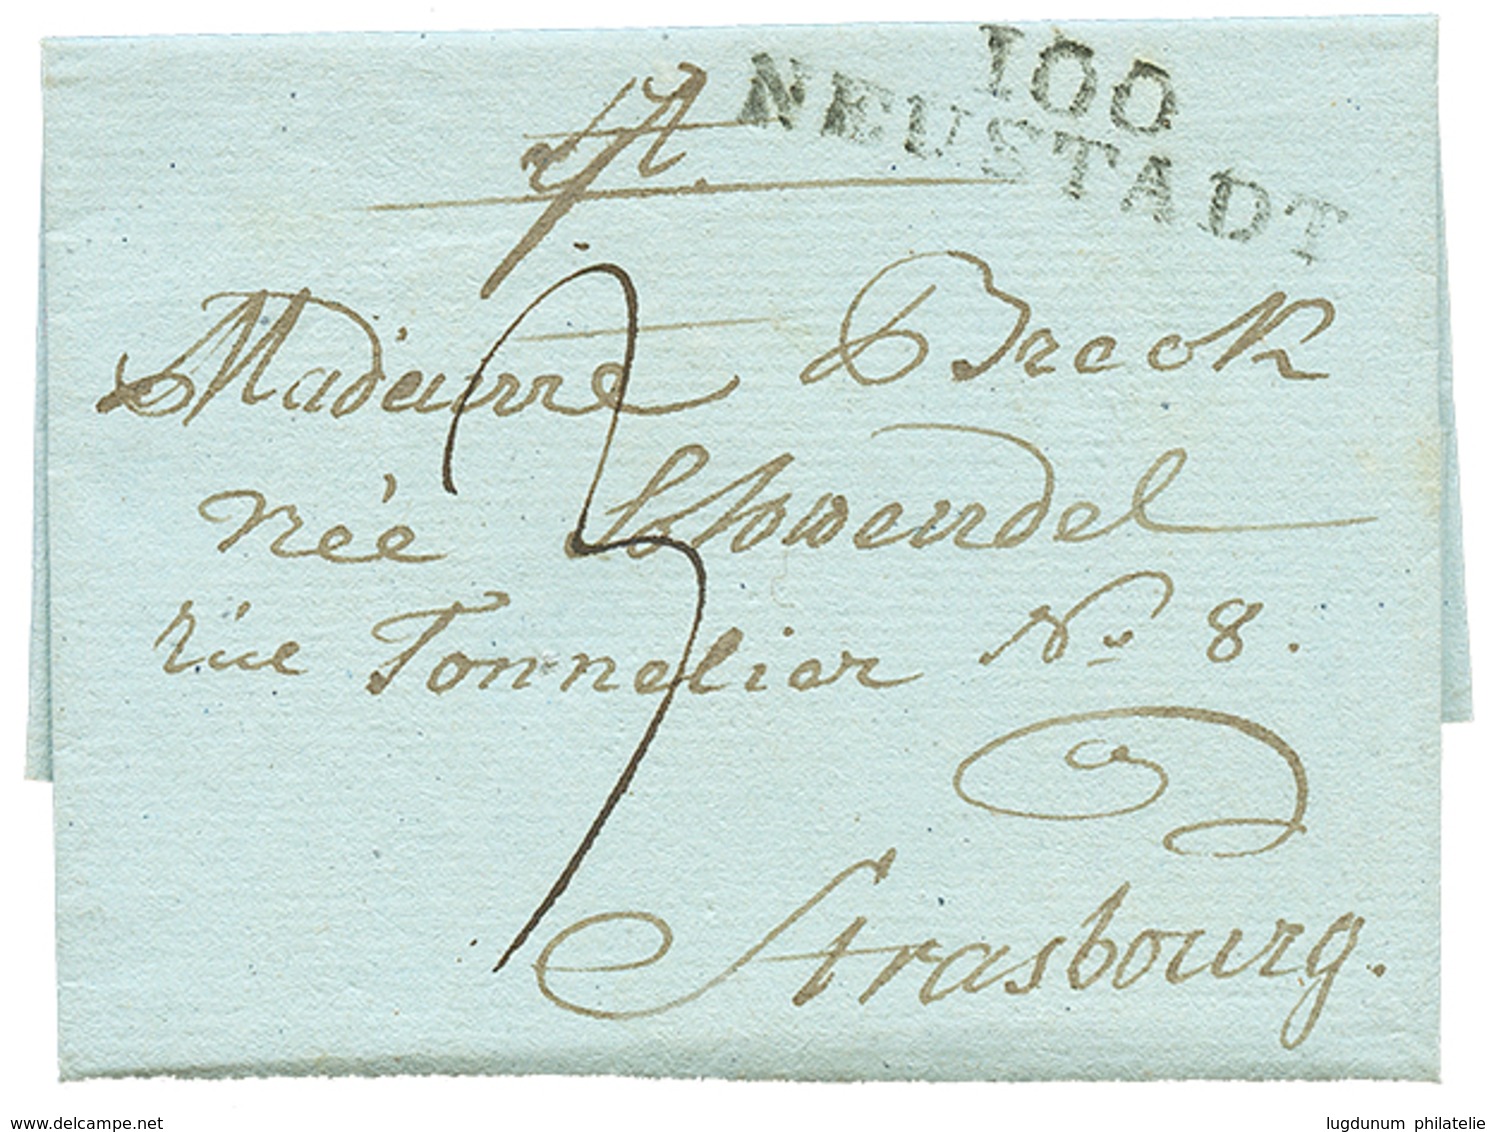 100
NEUSTADT
Madame Breck
née Schwendel
rue Tonnelier No 8.
3
à
Strasbourg.
www.delcampe.net
lugdunum philatelie